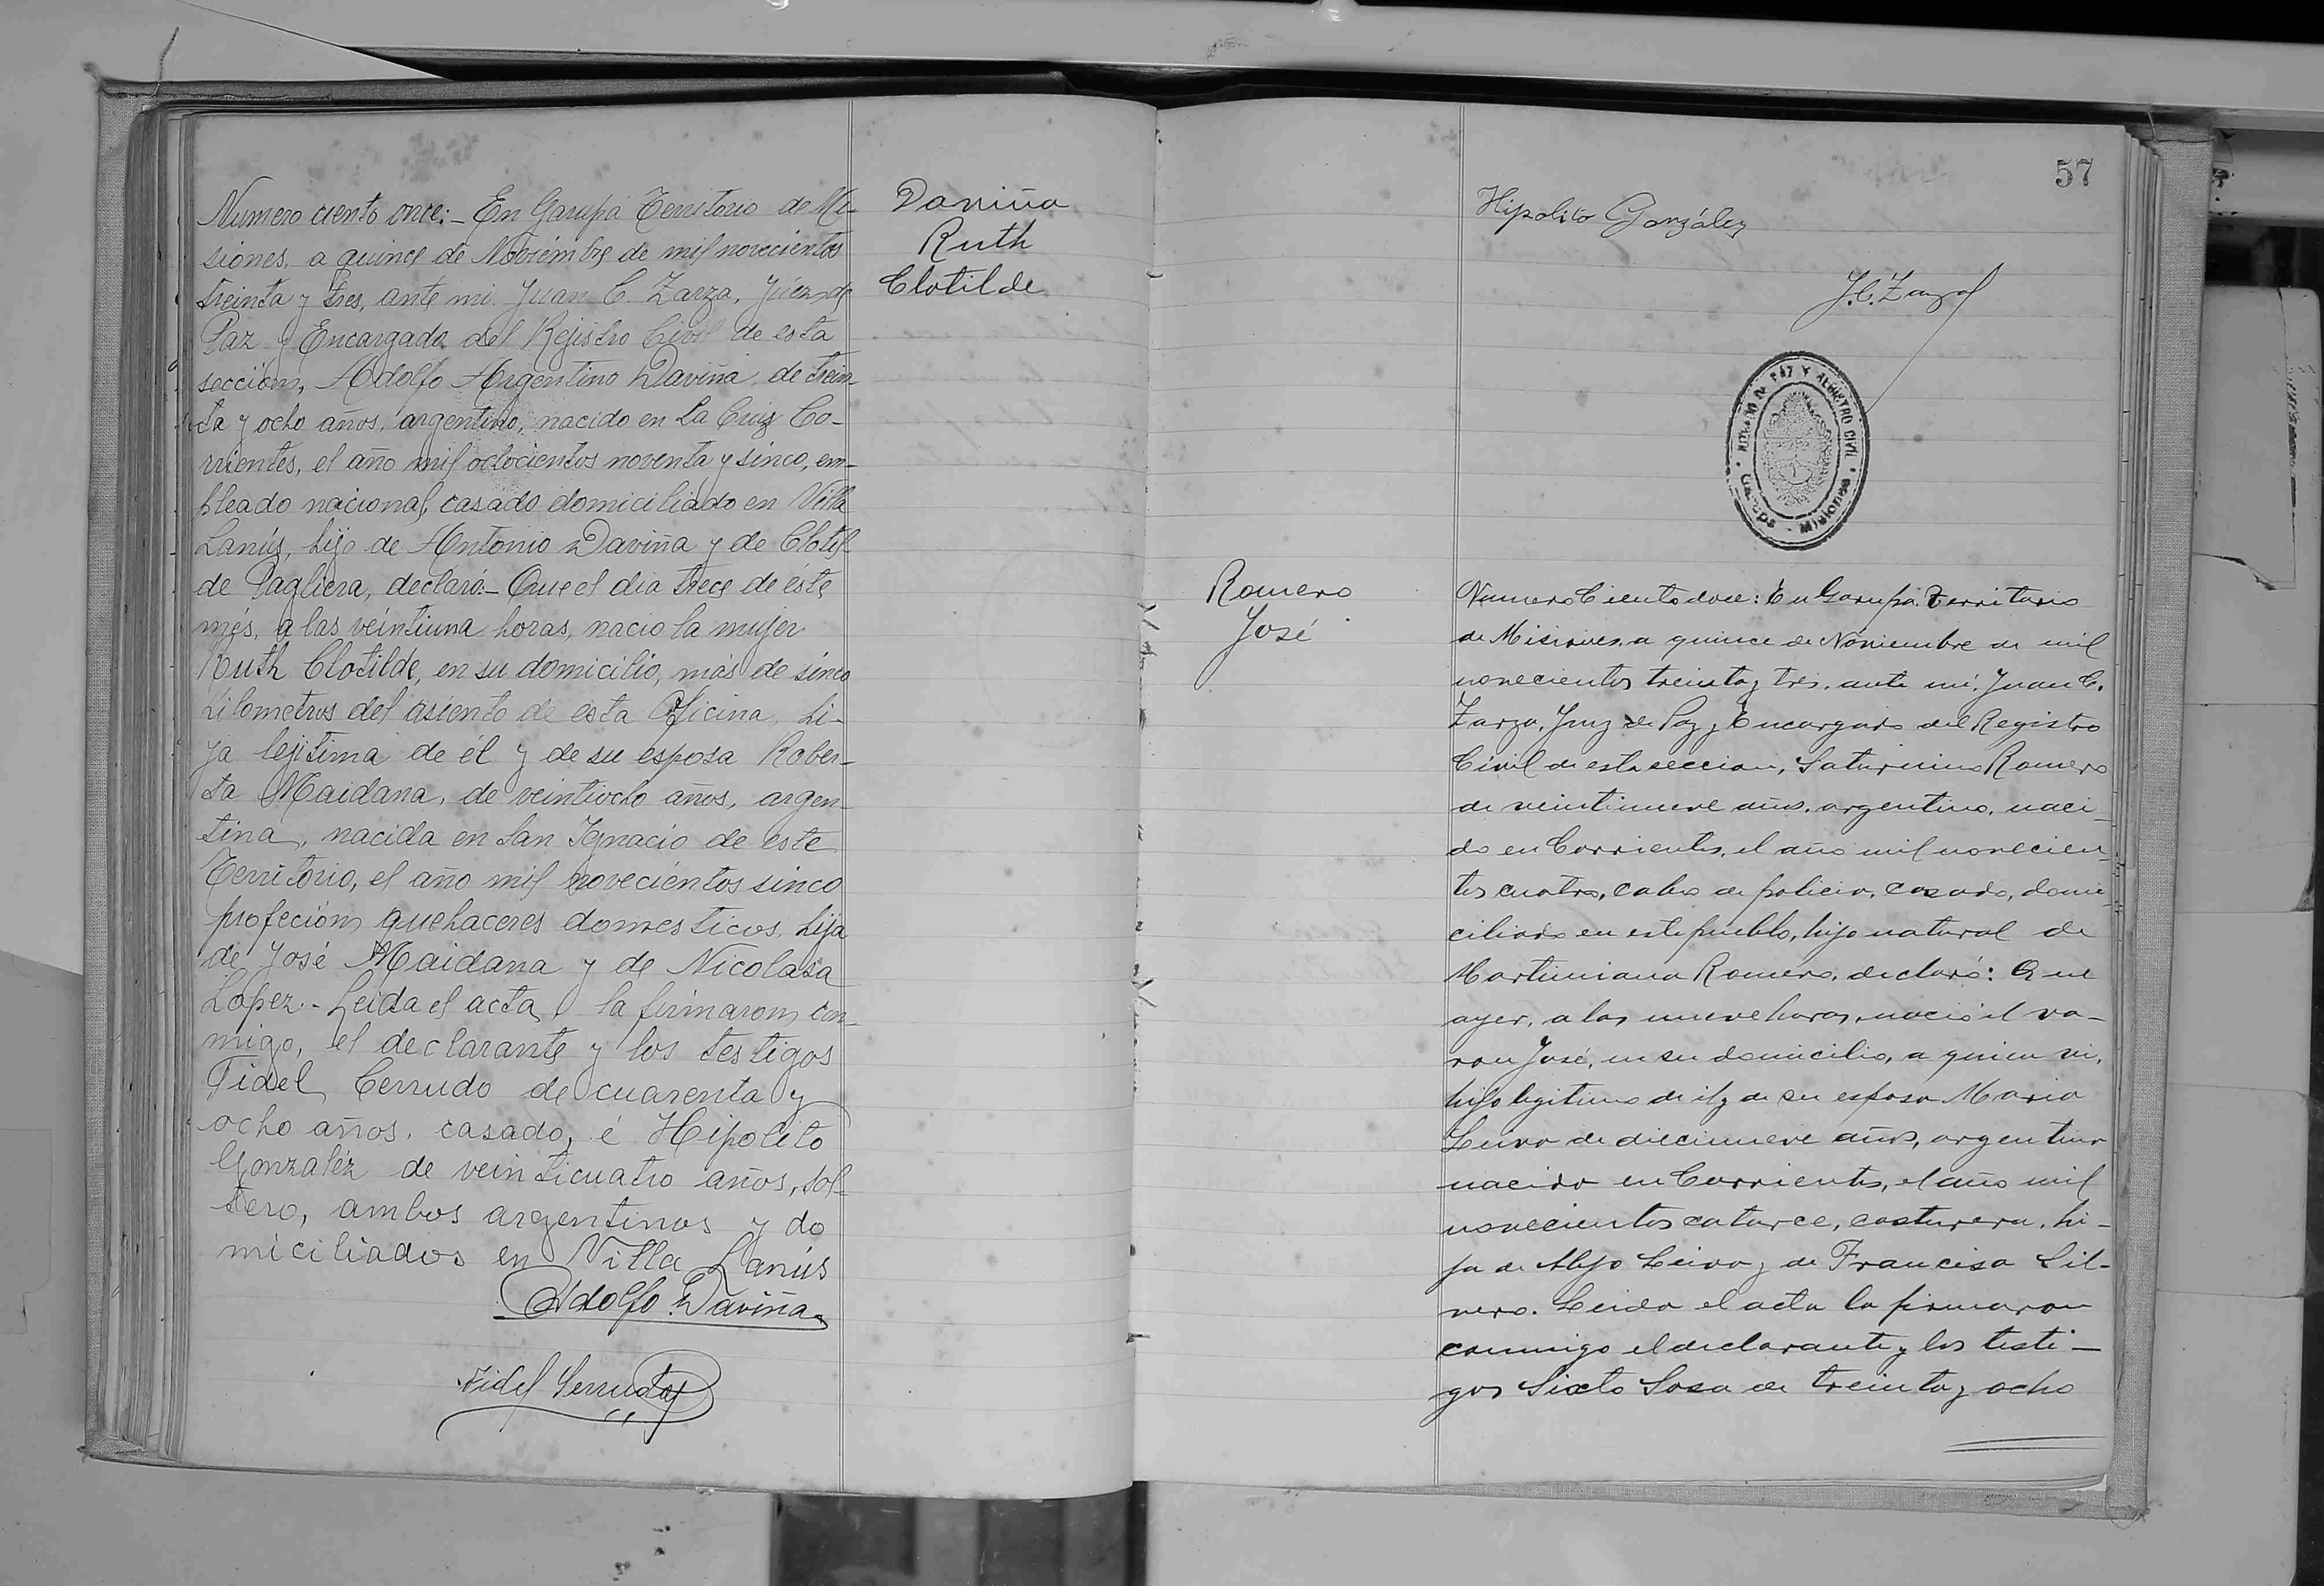 Numero ciento once:- En Garupá Territorio de Mi-
siones, a quince de Noviémbre de mil novecientos
treinta y tres, ante mi Juan C. Zarza, Juéz de
Paz y Encargado del Rejistro Civil de esta
seccion, Adolfo Argentino Daviña, de trein-
ta y ocho años, argentino, nacido en La Cruz Co-
rrientes, el año mil ochocientos noventa y sinco, em-
pleado nacional, casado domiciliado en Villa
Lanús, hijo de Antonio Daviña y de Clotil-
de Pagliera, declaró:- Que el dia trece de éste
més, a las veintiuna horas, nacio la mujer
Ruth Clotilde, en su domicilio, más de sinco
kilometros del asiento de esta Oficina, hi-
ja lejitima de él y de su esposa Rober-
ta Maidana, de veintiocho años, argen-
tina, nacida en San Ignacio de este
Territorio, el año mil novecientos sinco
profeción quehaceres domesticos, hija
de José Maidana y de Nicolasa
Lopez.- Leida el acta, la firmaron con-
migo, el declarante y los testigos
Fidel Cerrudo de cuarenta y
ocho años, casado, é Hipolito
Gonzaléz de veinticuatro años, sol-
tero, ambos argentinos y do
miciliados en Villa Lanús
Adolfo Daviña
Fidel Serrudo
Daviña
Ruth
Clotilde
57
Hipolito González
J.C. Zarza
JUZGADO DE PAZ Y REGISTRO CIVIL
MISIONES
Romero
José
Numero Ciento doce: En Garupá Territorio
de Misiones, a quince de Noviembre de mil
novecientos treinta y tres, ante mí, Juan C.
Zarza, Juez de Paz y Encargado del Registro
Civil de esta seccion, Saturnino Romero
de veintinueve años, argentino, naci-
do en Corrientes, el año mil novecien-
tos cuatro, cabo de policia, casado, domi-
ciliado en este pueblo, hijo natural de
Martiniana Romero, declaró: Que
ayer, a las nueve horas, nació el va-
ron José, en su domicilio, a quien vi,
hijo legitimo de él y de su esposa Maria
Leiva de diecinueve años, argentina
nacida en Corrientes, el año mil
novecientos catorce, costurera, hi-
ja de Alejo Leiva y de Francisca Sil-
vero. Leida el acta la firmaron
conmigo el declarante y los testi-
gos Sixto Sosa de treinta y ocho